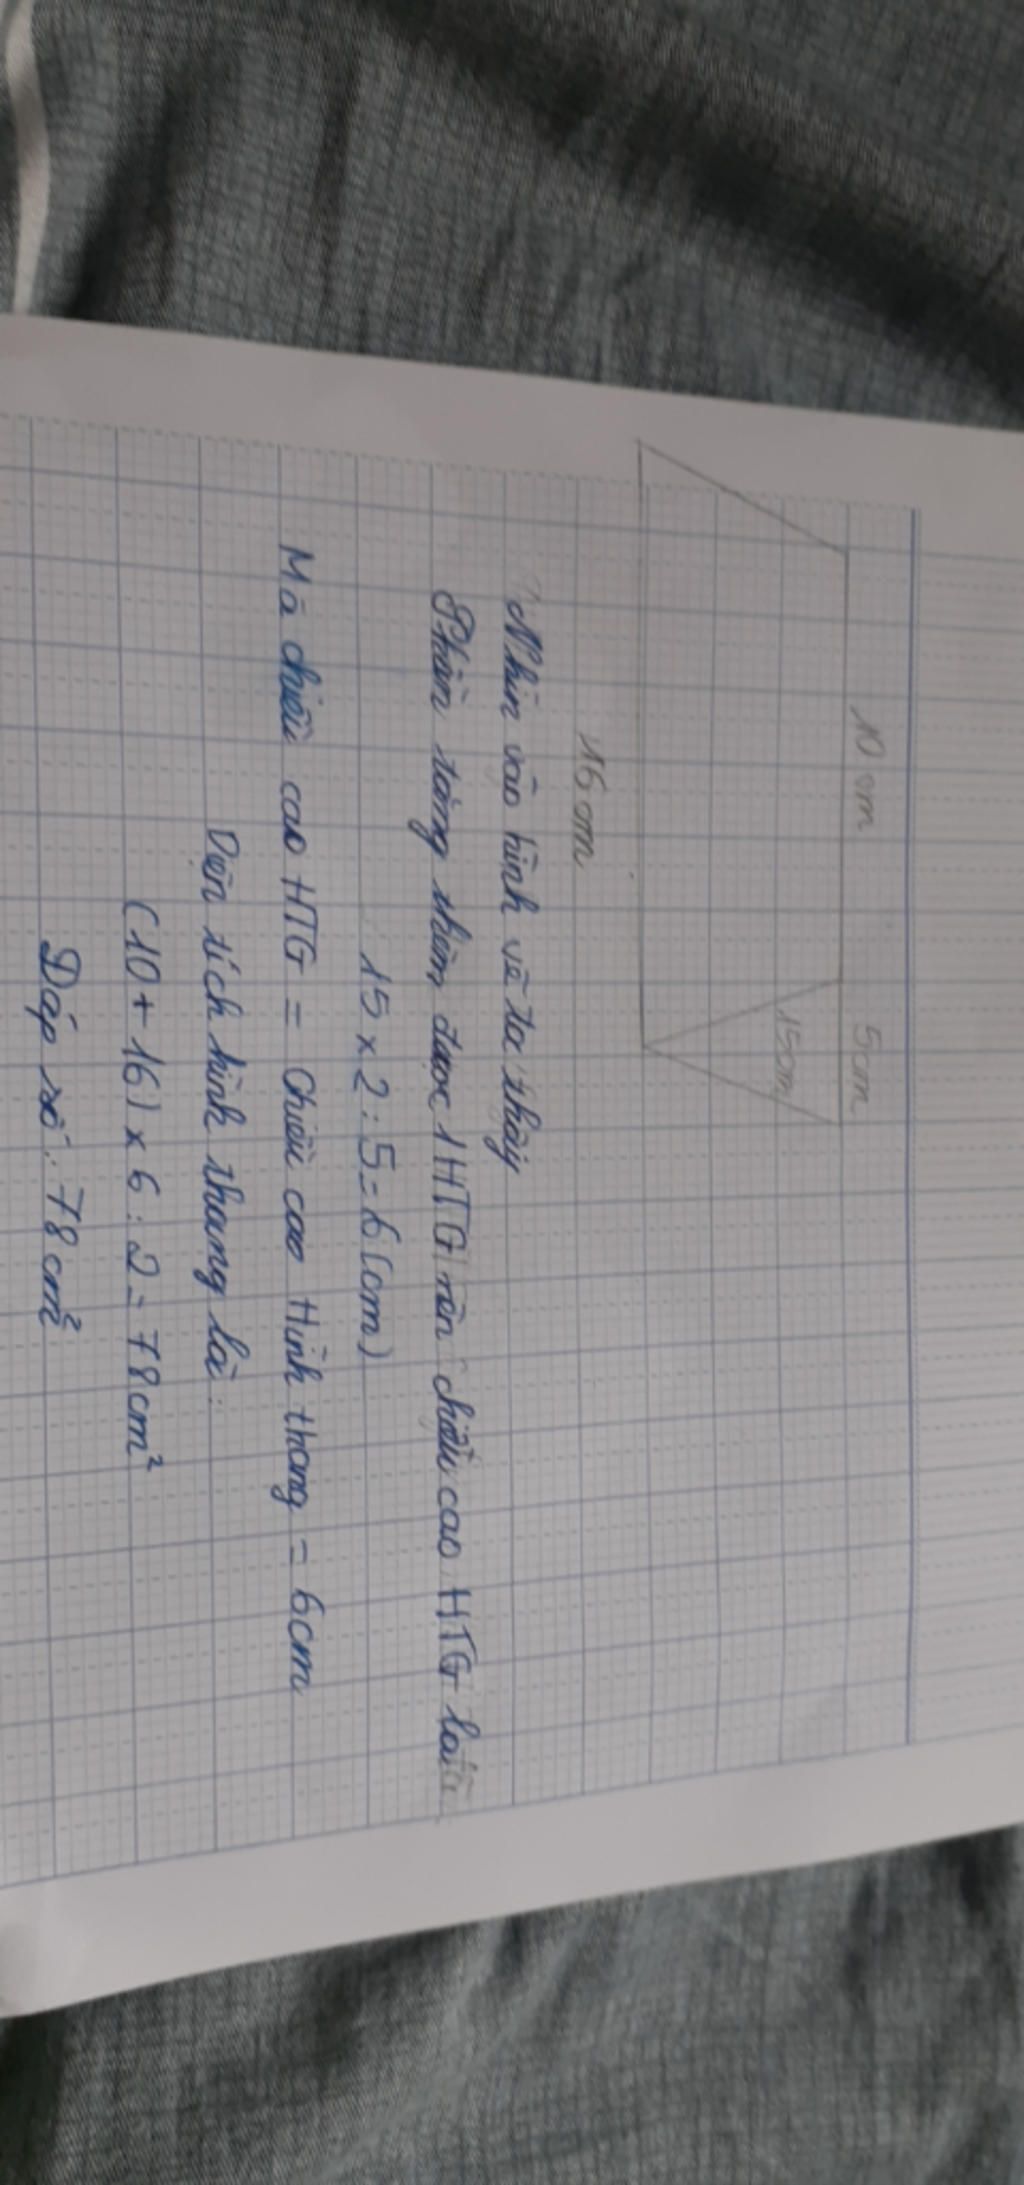 10 cm 5cm
15cm
16 cm
Nhìn vào hình vẽ ta thấy
Phần tăng thêm được 1 HTG nên chiều cao HTG là:
15 x 2 : 5 = 6 (cm)
Mà chiều cao HTG = chiều cao Hình thang = 6cm
Diện tích hình thang là:
(10 + 16) x 6 : 2 = 78 cm²
Đáp số: 78 cm²